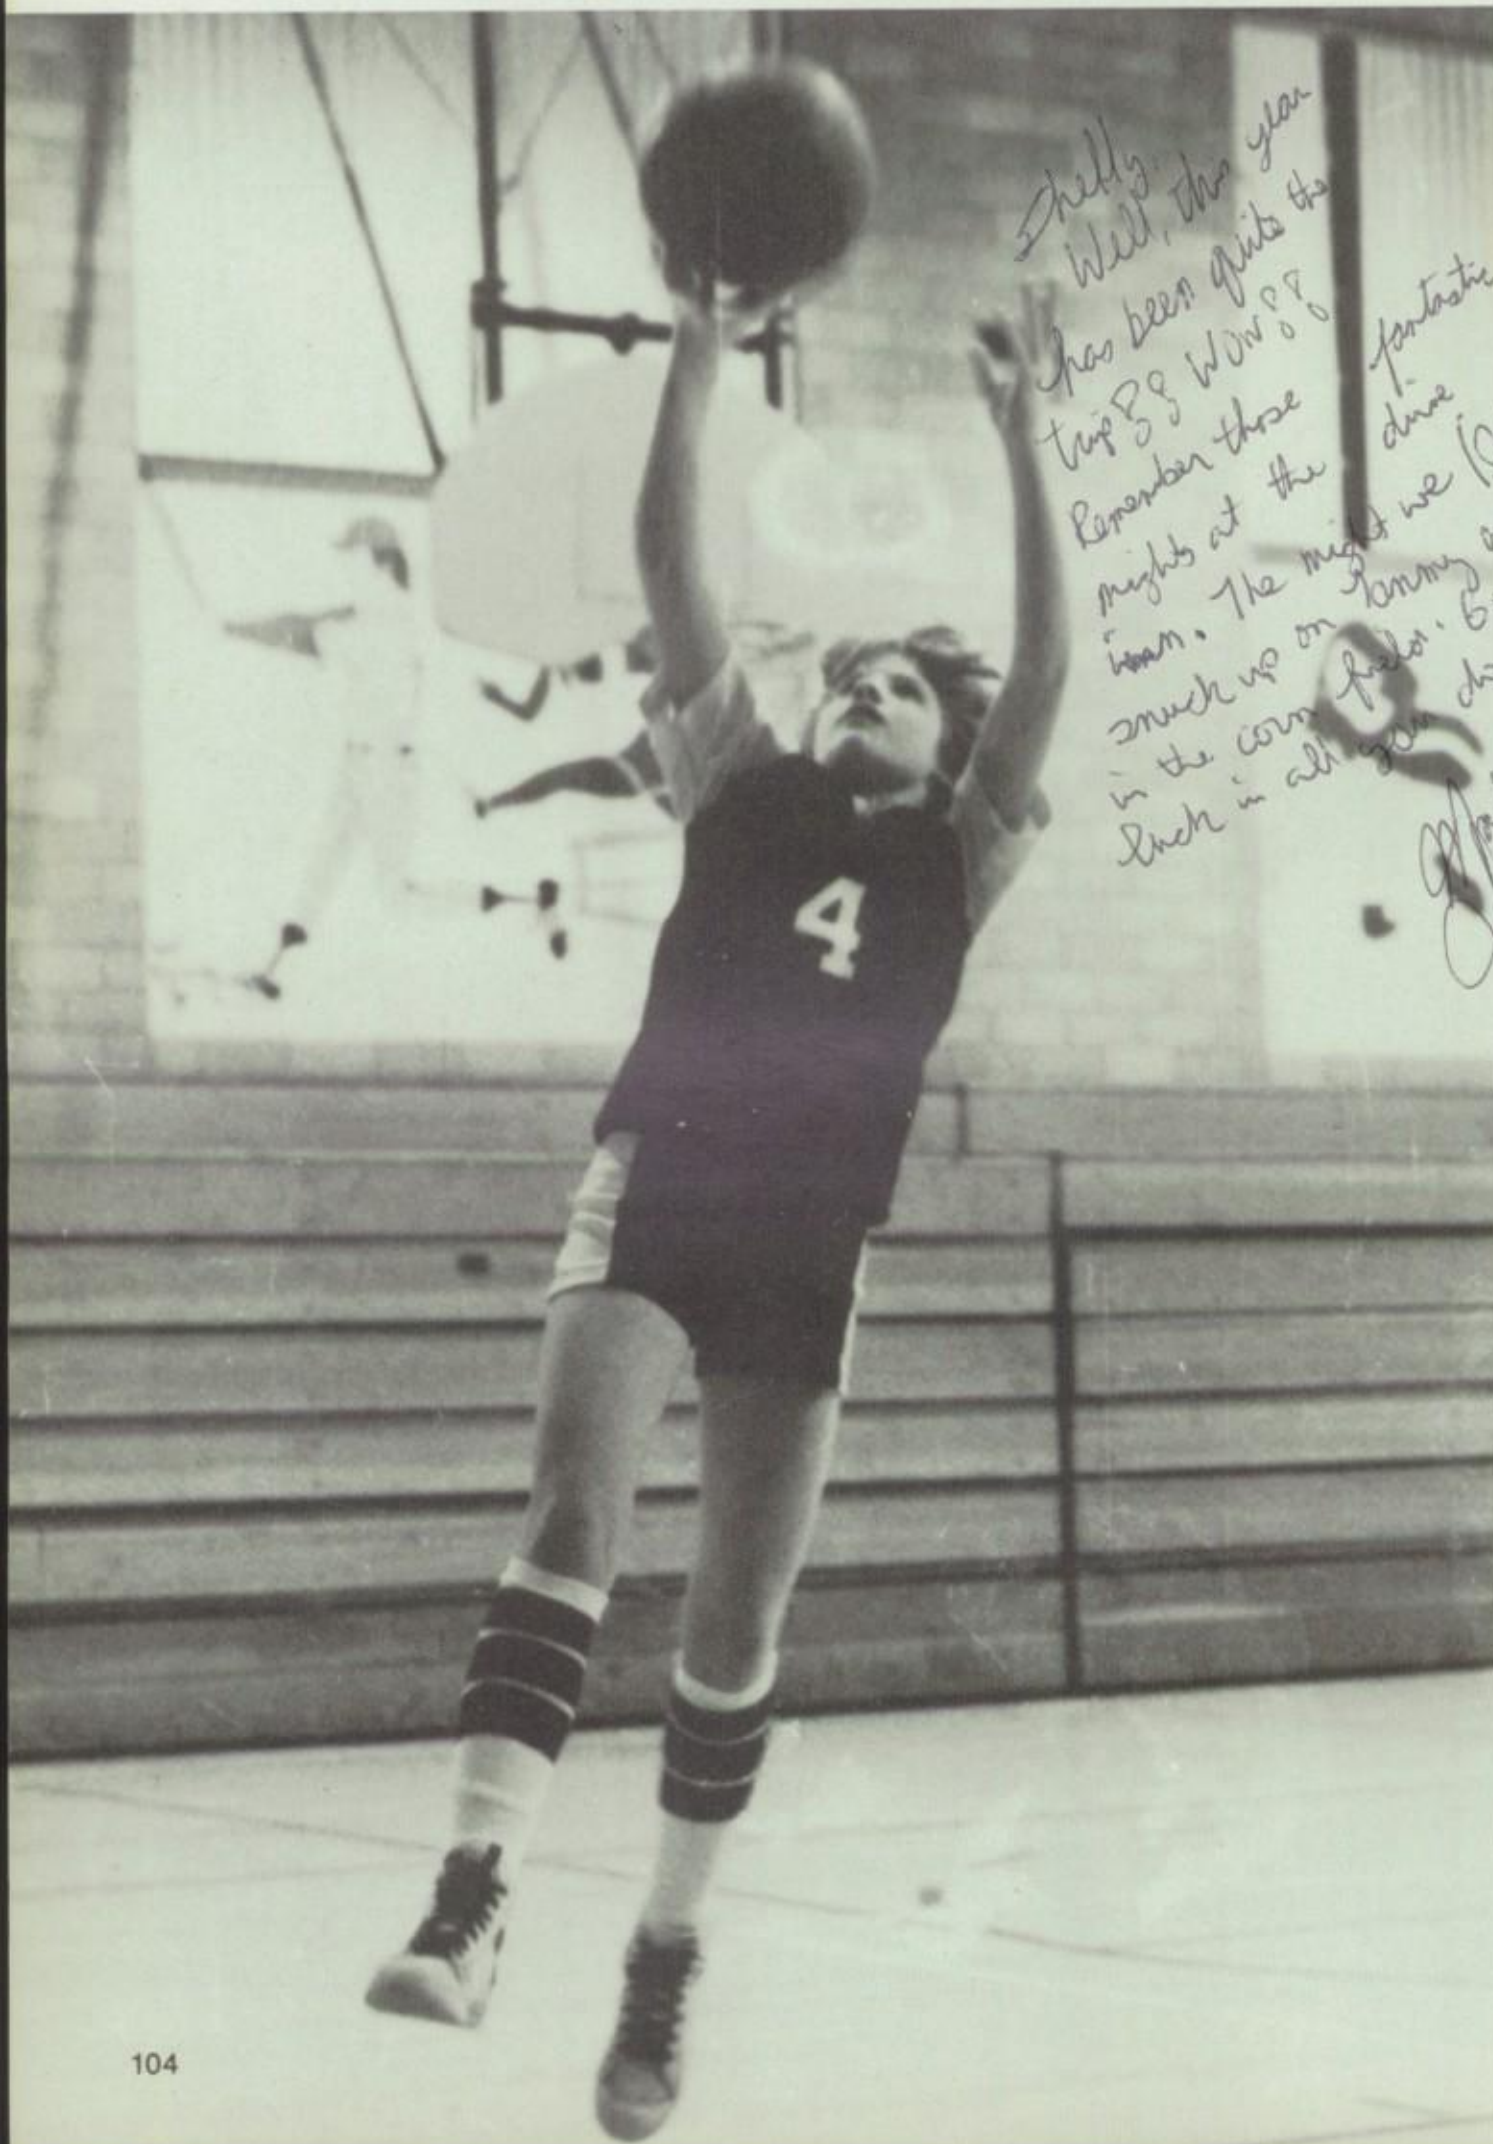 Shelly,
Well, this year
has been quite the
trip!! Wow!!
Remember those fantastic
nights at the drive
inn. The night we
snuck up on Tammy
in the corn field.
luck in all you
4
104